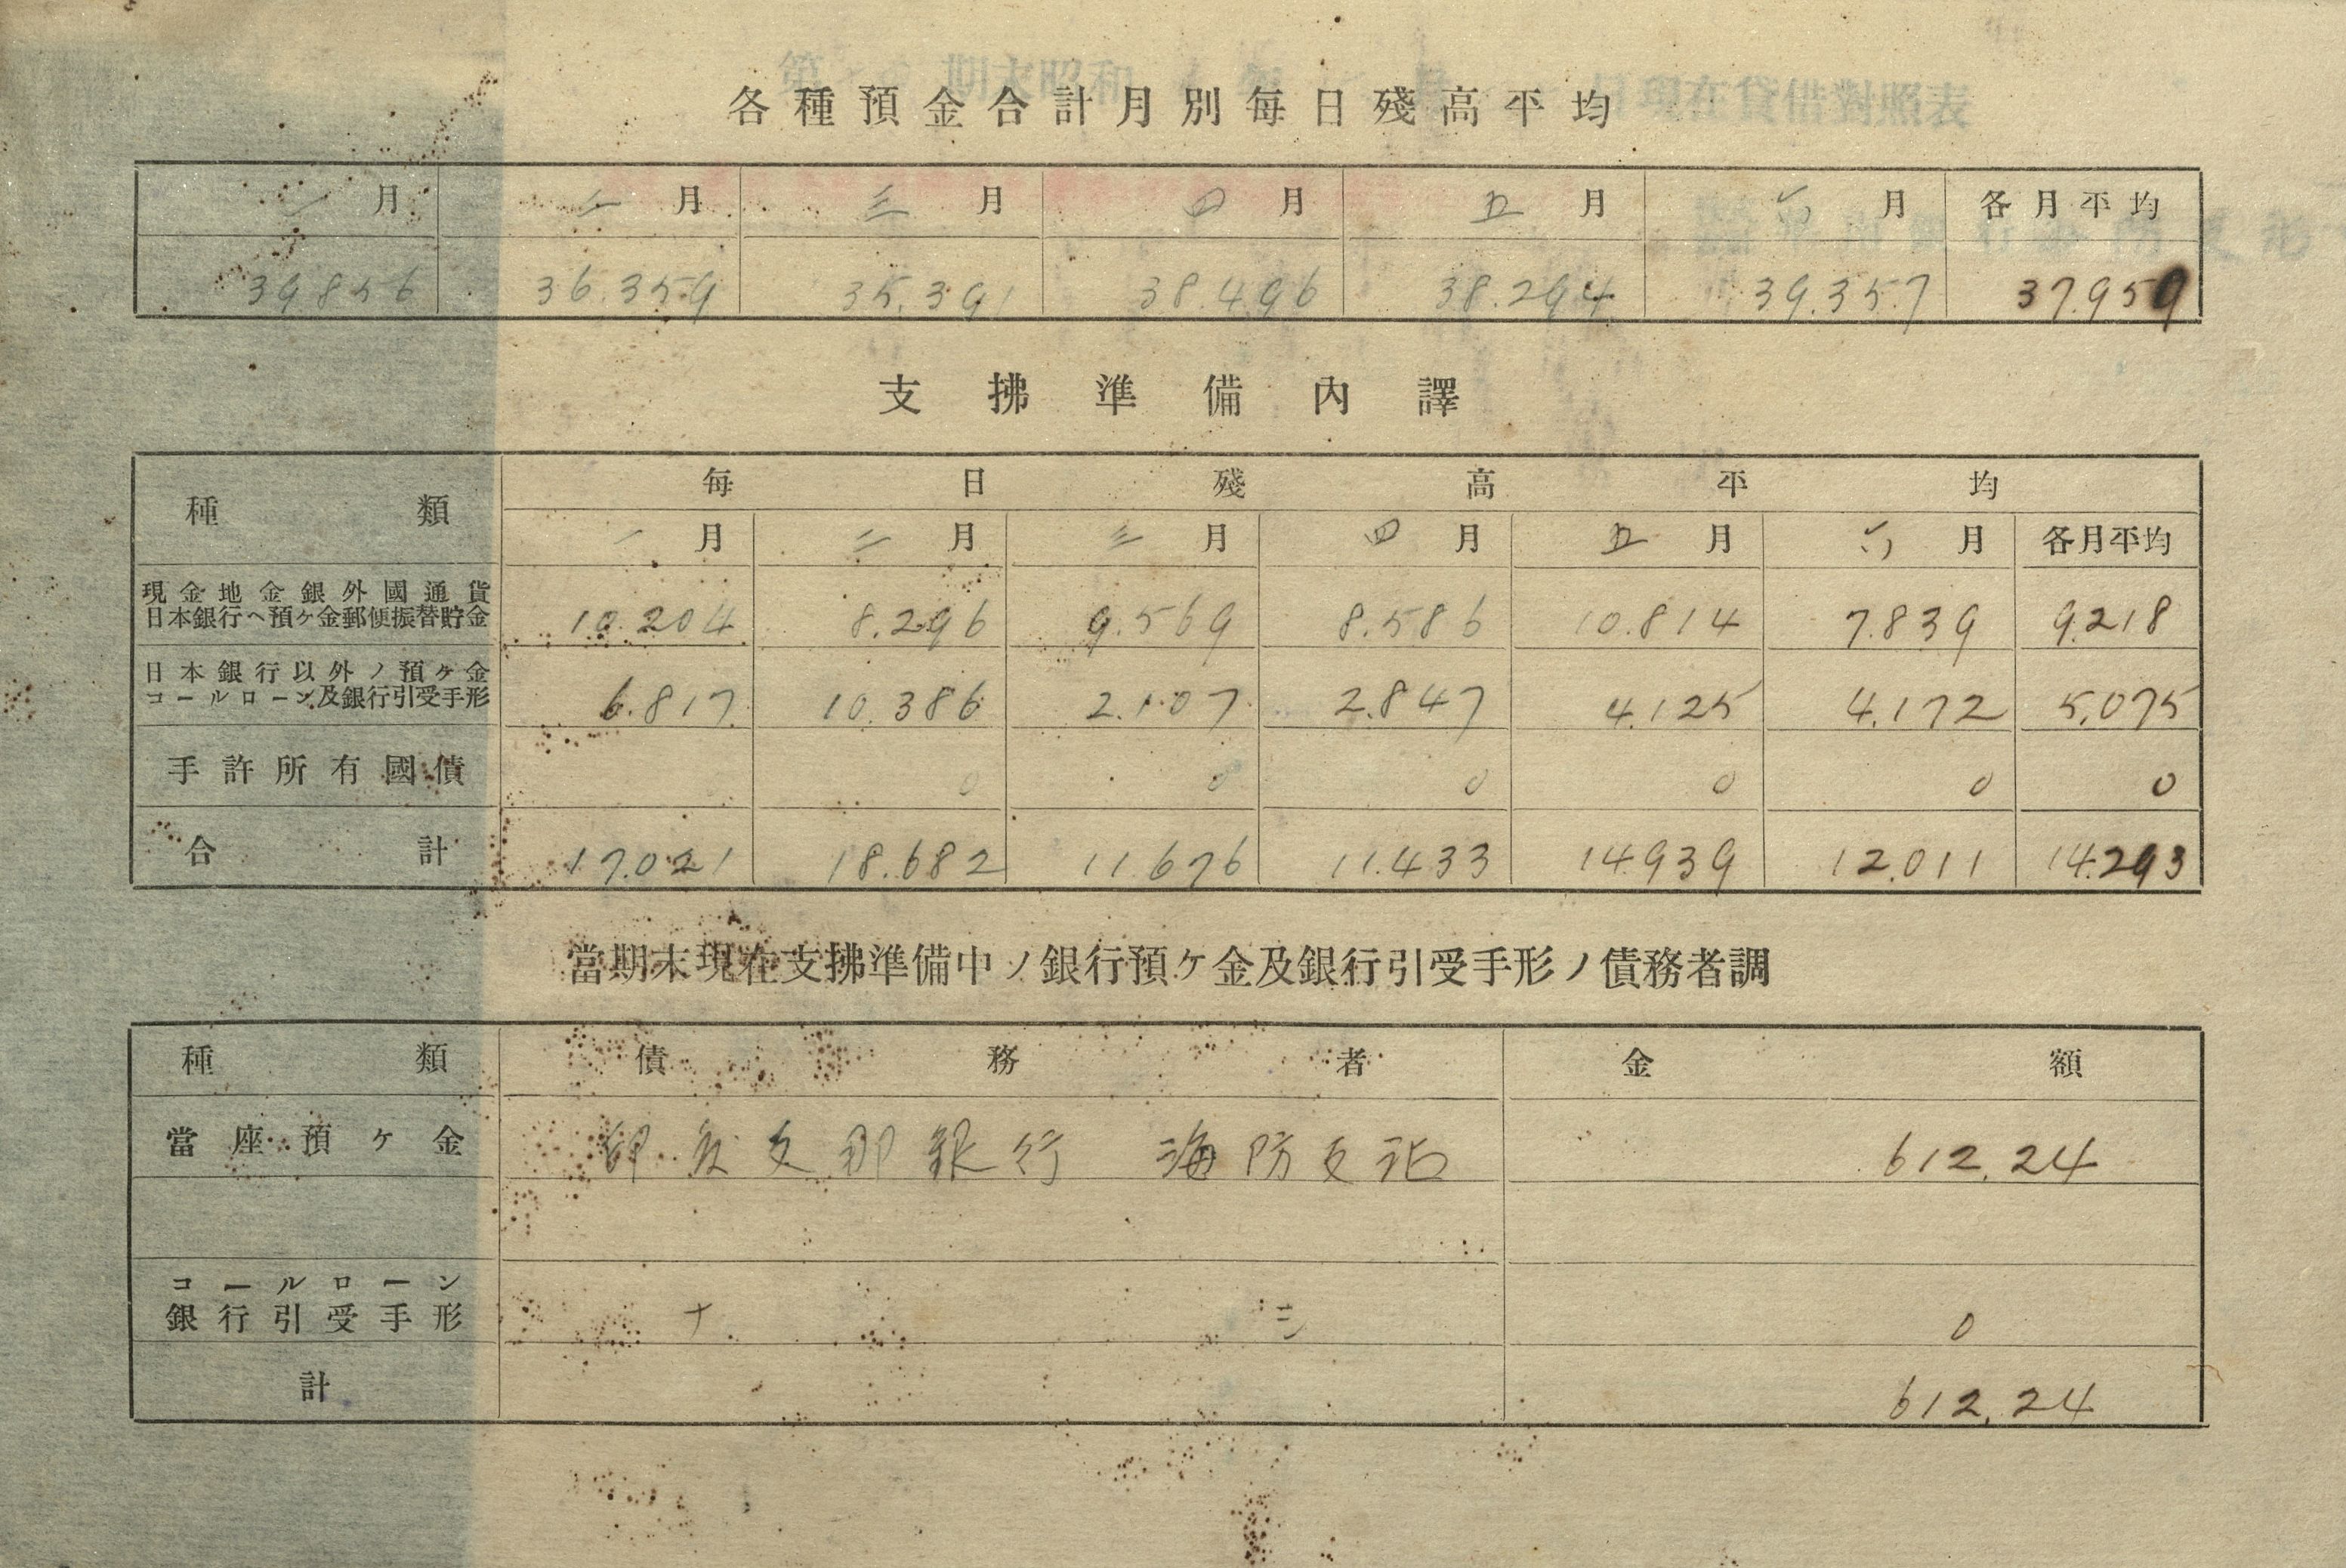 各種預金合計月別每日殘高平均
一月 二月 三月 四月 五月 六月 各月平均
39856 36.359 35.391 38.496 38.294 39.357 37.959
支拂準備內譯
種類 每日殘高平均
一月 二月 三月 四月 五月 六月 各月平均
現金地金銀外國通貨
日本銀行ヘ預ヶ金郵便振替貯金 10.204 8.296 9.569 8.586 10.814 7.839 9.218
日本銀行以外ノ預ヶ金
コールローン及銀行引受手形 6.817 10.386 2.107 2.847 4.125 4.172 5.075
手許所有國債 0 0 0 0 0 0
合計 17.021 18.682 11.676 11.433 14.939 12.011 14.293
當期末現在支拂準備中ノ銀行預ケ金及銀行引受手形ノ債務者調
種類 債務者 金額
當座預ケ金 印度支那銀行 海防支店 612.24
コールローン
銀行引受手形 ナシ 0
計 612.24